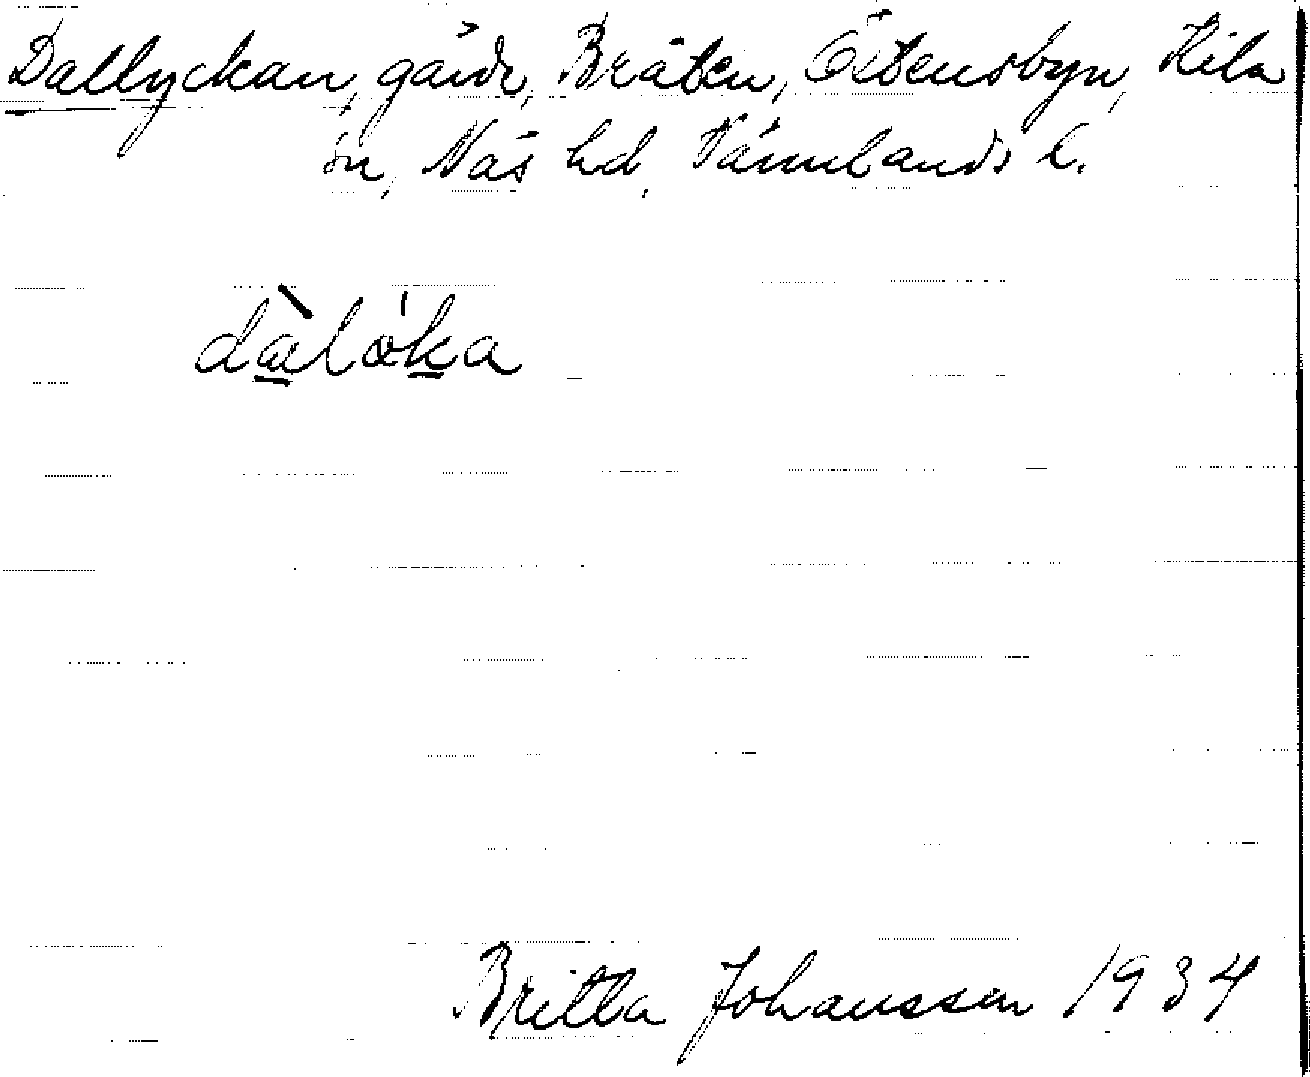 Dallyckan, gård, Bråten, Östensbyn, Kila
sn, Näs hd, Värmlands l.
dàlø̍ka
Britta Johansson 1934